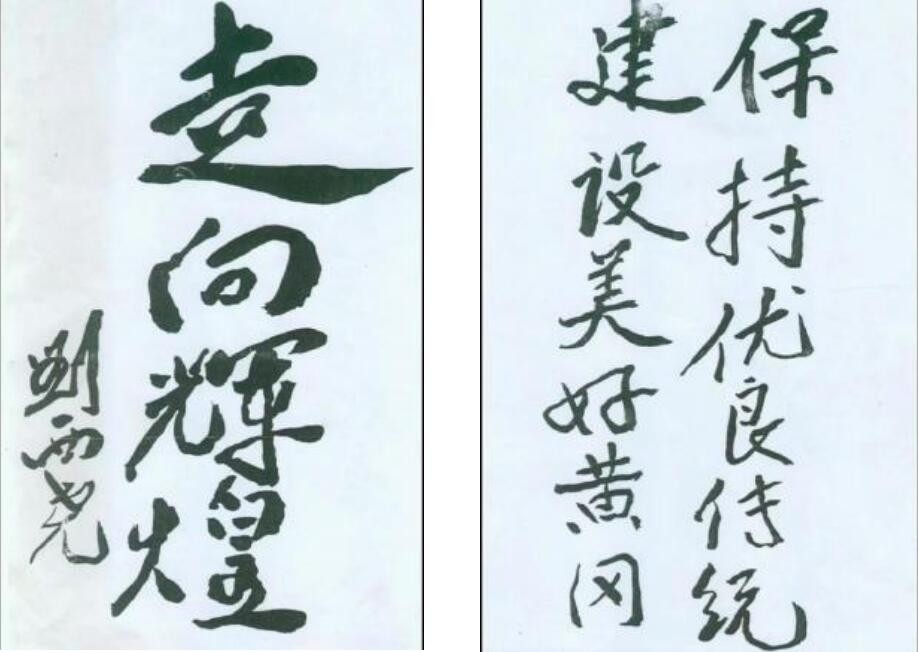 走向輝煌
劉西尧
保持优良传统
建设美好黄冈